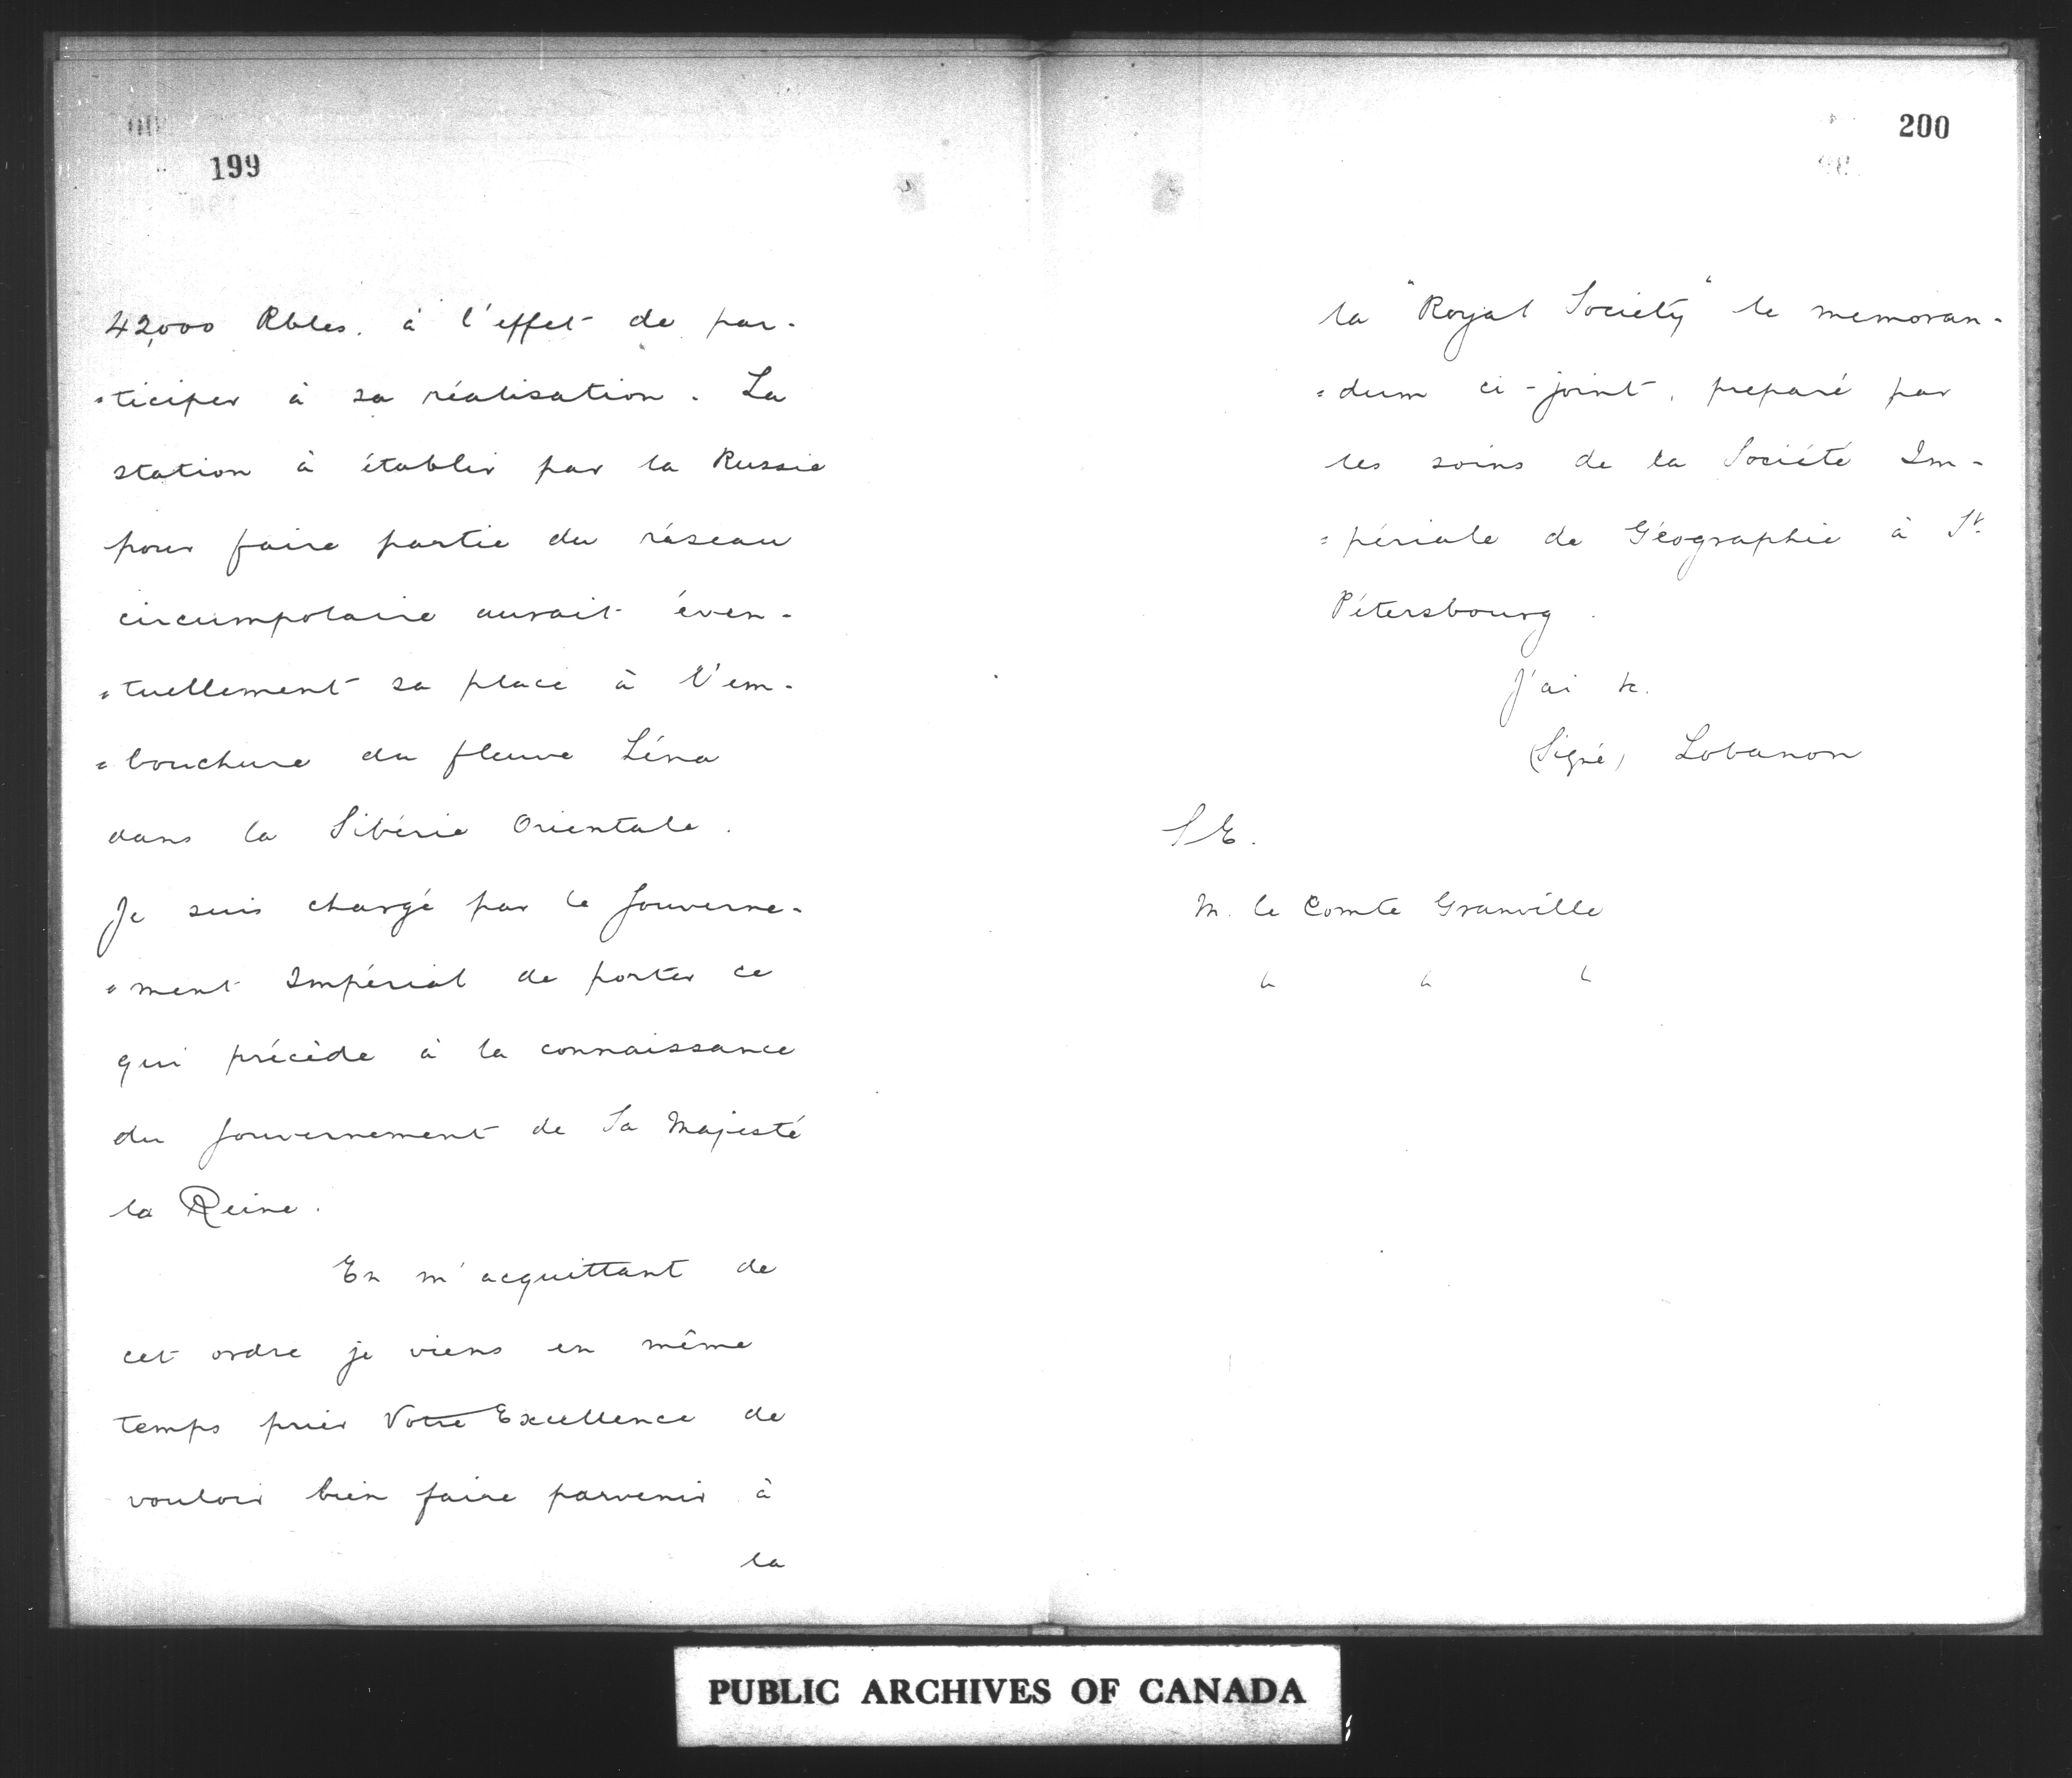 199
42,000 Rbles. à l'effet de par-
=ticiper à sa réalisation. La
station à établir par la Russie
pour faire partie du réseau
circumpolaire aurait éven-
=tuellement sa place à l'em-
=bouchure du fleuve Léna
dans la Sibérie Orientale.
Je suis chargé par le Gouverne-
=ment Impérial de porter ce
qui précède à la connaissance
du Gouvernement de Sa Majesté
la Reine.
En m'acquittant de
cet ordre je viens en même
temps prier Votre Excellence de
vouloir bien faire parvenir à
la
200
la "Royal Society" le memoran-
=dum ci-joint, preparé par
les soins de la Société Im-
=périale de Géographie à St.
Pétersbourg.
J'ai &c.
(Signé) Lobanon
S E.
M. le Comte Granville
PUBLIC ARCHIVES OF CANADA